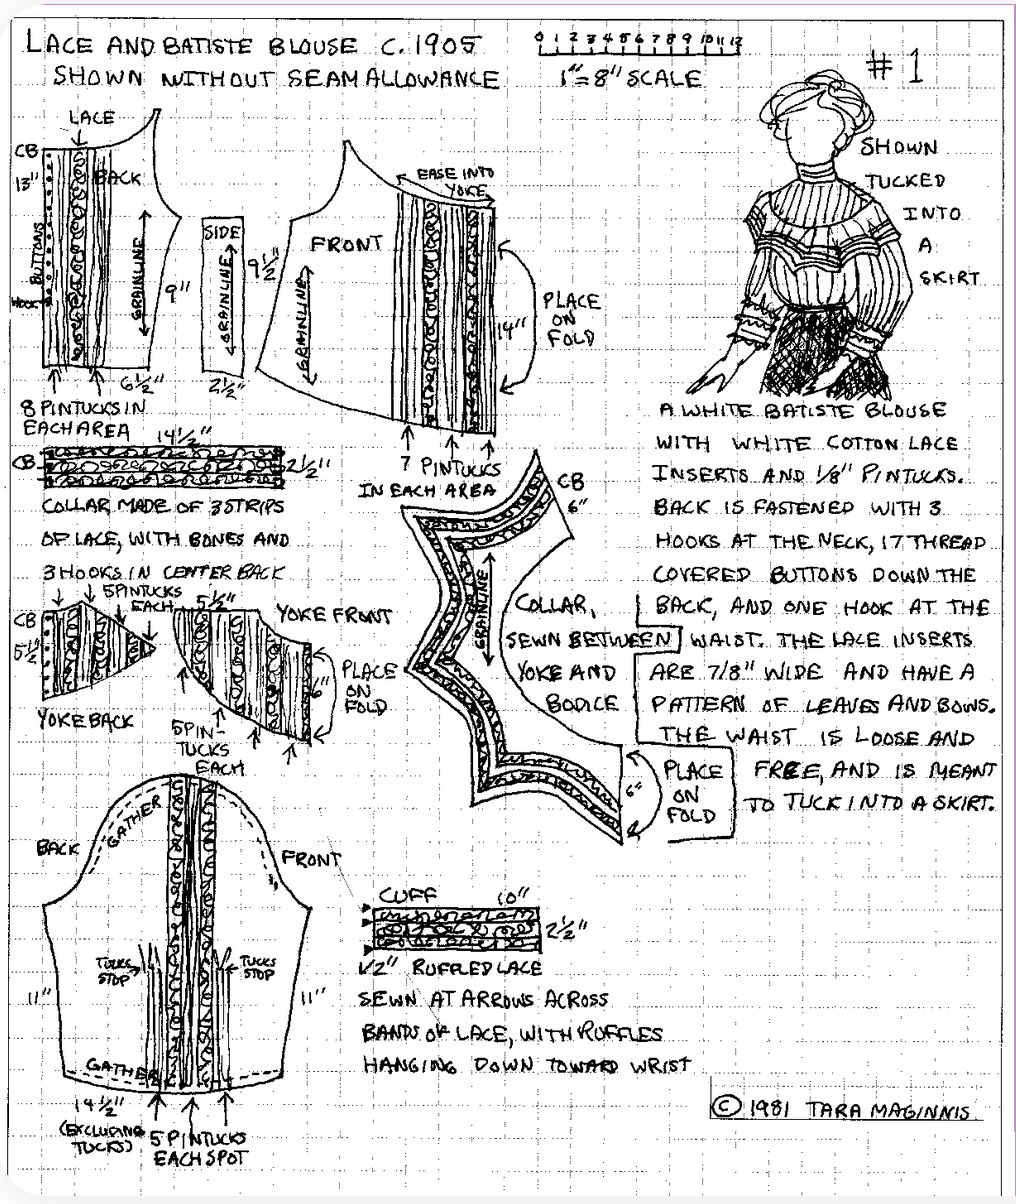 LACE AND BATISTE BLOUSE C. 1905
SHOWN WITHOUT SEAM ALLOWANCE
0 1 2 3 4 5 6 7 8 9 10 11 12
1"=8" SCALE
#1
SHOWN
TUCKED
INTO
A
SKIRT
LACE
CB
13"
BACK
BUTTONS
HOOK
GRAINLINE
9"
6½"
8 PINTUCKS IN
EACH AREA
SIDE
GRAINLINE
9½"
2½"
FRONT
GRAINLINE
EASE INTO
YOKE
14"
PLACE
ON
FOLD
7 PINTUCKS
IN EACH AREA
14½"
CB
2½"
COLLAR MADE OF 3 STRIPS
OF LACE, WITH BONES AND
3 HOOKS IN CENTER BACK
5 PINTUCKS
EACH
CB
5½"
YOKE BACK
5½"
YOKE FRONT
6"
PLACE
ON
FOLD
5 PIN-
TUCKS
EACH
CB
6"
GRAINLINE
COLLAR,
SEWN BETWEEN
YOKE AND
BODICE
6"
PLACE
ON
FOLD
A WHITE BATISTE BLOUSE
WITH WHITE COTTON LACE
INSERTS AND 1/8" PINTUCKS.
BACK IS FASTENED WITH 3
HOOKS AT THE NECK, 17 THREAD
COVERED BUTTONS DOWN THE
BACK, AND ONE HOOK AT THE
WAIST. THE LACE INSERTS
ARE 7/8" WIDE AND HAVE A
PATTERN OF LEAVES AND BOWS.
THE WAIST IS LOOSE AND
FREE, AND IS MEANT
TO TUCK INTO A SKIRT.
GATHER
BACK
FRONT
TUCKS
STOP
TUCKS
STOP
11"
11"
GATHER
14½"
(EXCLUDING
TUCKS)
5 PINTUCKS
EACH SPOT
CUFF
10"
2½"
1/2" RUFFLED LACE
SEWN AT ARROWS ACROSS
BANDS OF LACE, WITH RUFFLES
HANGING DOWN TOWARD WRIST
© 1981 TARA MAGINNIS